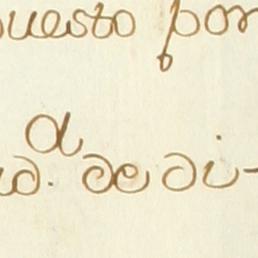 puesto por
ud.ᵃ de di-